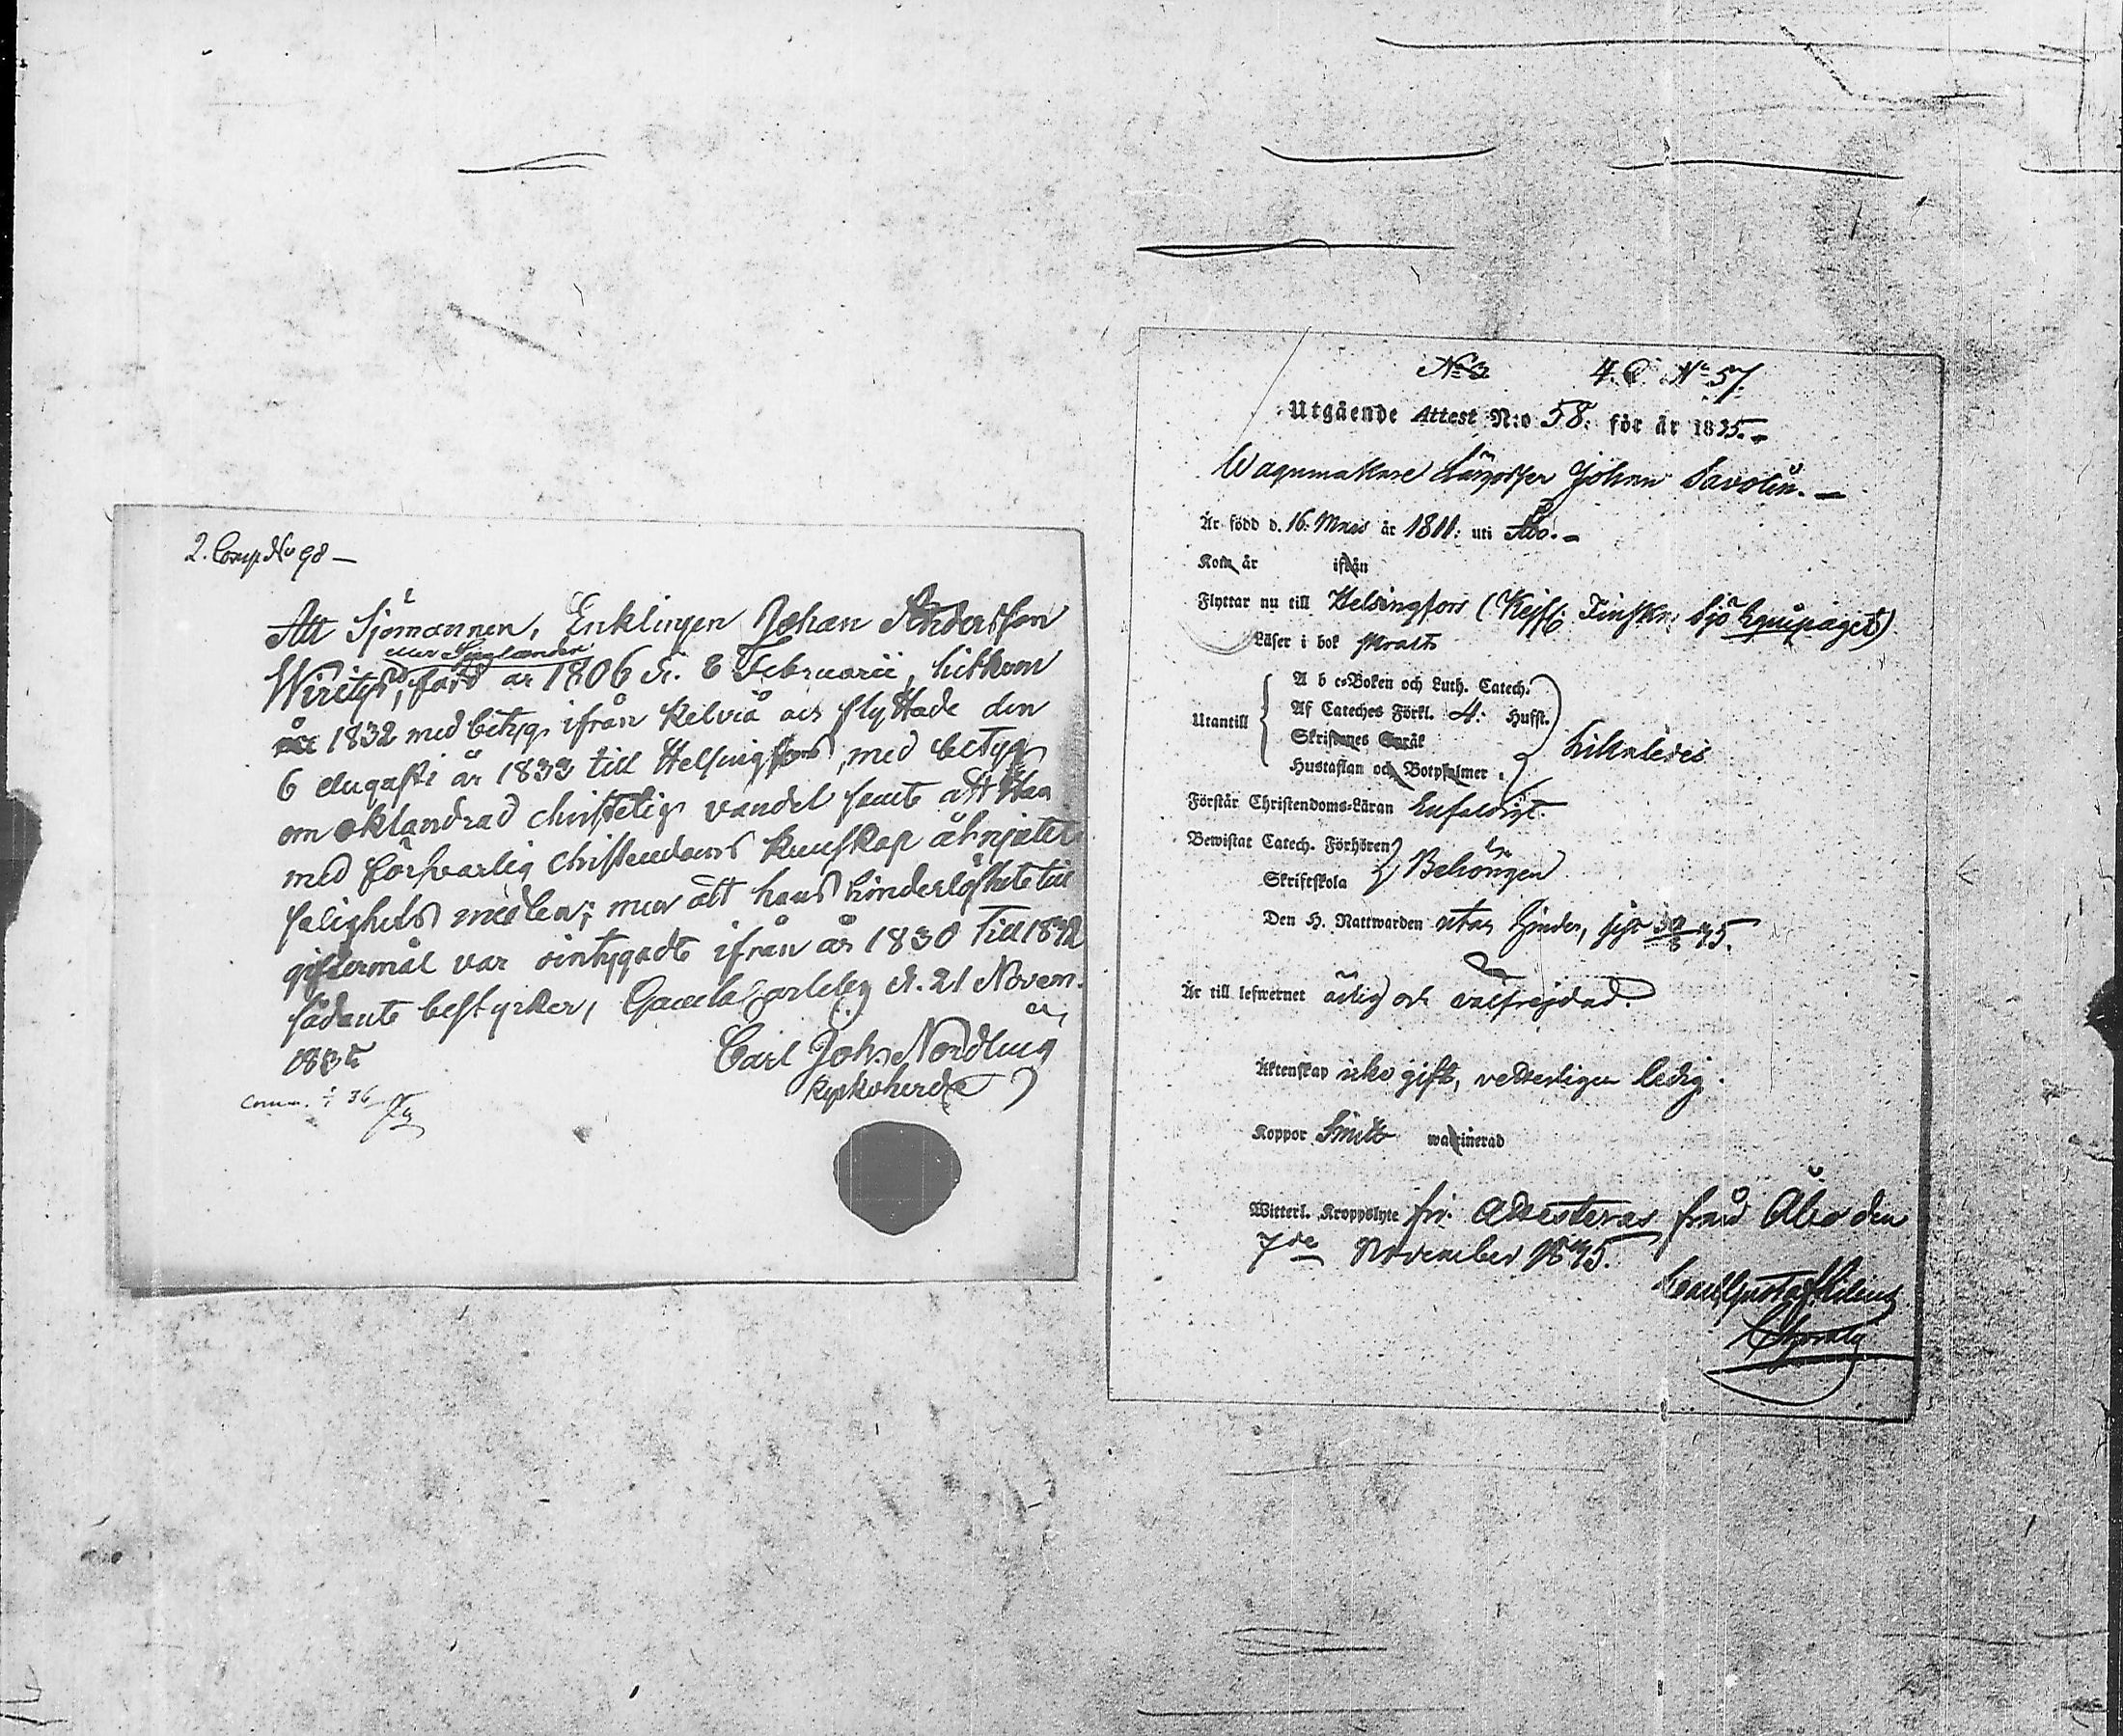 2. Comp. No 98 —
Att Sjömannen, Enklingen Johan Andersson
eller Sjöglander
Wirits, född år 1806 d. 8 Februarii, hitkom
år 1832 med betyg ifrån Kelviå och flyttade den
6 Augusti år 1833 till Helsingfors, med betyg
om oklandrad christelig vandel samt att Han
med försvarlig christendoms kunskap åtnjutit
salighets medlen; men att hans hinderlöshet till
giftermål var ointygadt ifrån år 1830 till 1832
sådant bestyrker, Gamla Carleby d. 21 Novem.
1835
Carl Joh. Nordling
Kyrkoherde
Comm. 36
No 3. 4. C. No 57.
Utgående Attest N:o 58. för år 1835.
Wagnmakare Lärgosse Johan Savolin. —
Är född d. 16. Mars år 1811: uti Åbo. —
Kom år ifrån
Flyttar nu till Helsingfors (Kejs. Finska Sjö Equipaget)
Läser i bok
Utantill
A b c-Boken och Luth. Catech.
Af Cateches Förkl. 4. Hufst.
Skriftenes Språk
Hustaflan och Botpsalmer.
Likaledes
Förstår Christendoms-Läran Enfaldigt.
Bewistat Catech. Förhören
Skriftskola
Behörigen
Den H. Nattwarden utan hinder, 35.
Är till lefwernet ärlig och välfrejdad.
Äktenskap icke gift, vetterligen ledig.
Koppor wakcinerad
Witterl. Kroppslyte fri. Attesteras från Åbo den
7de November 1835.
Carl Gustaf